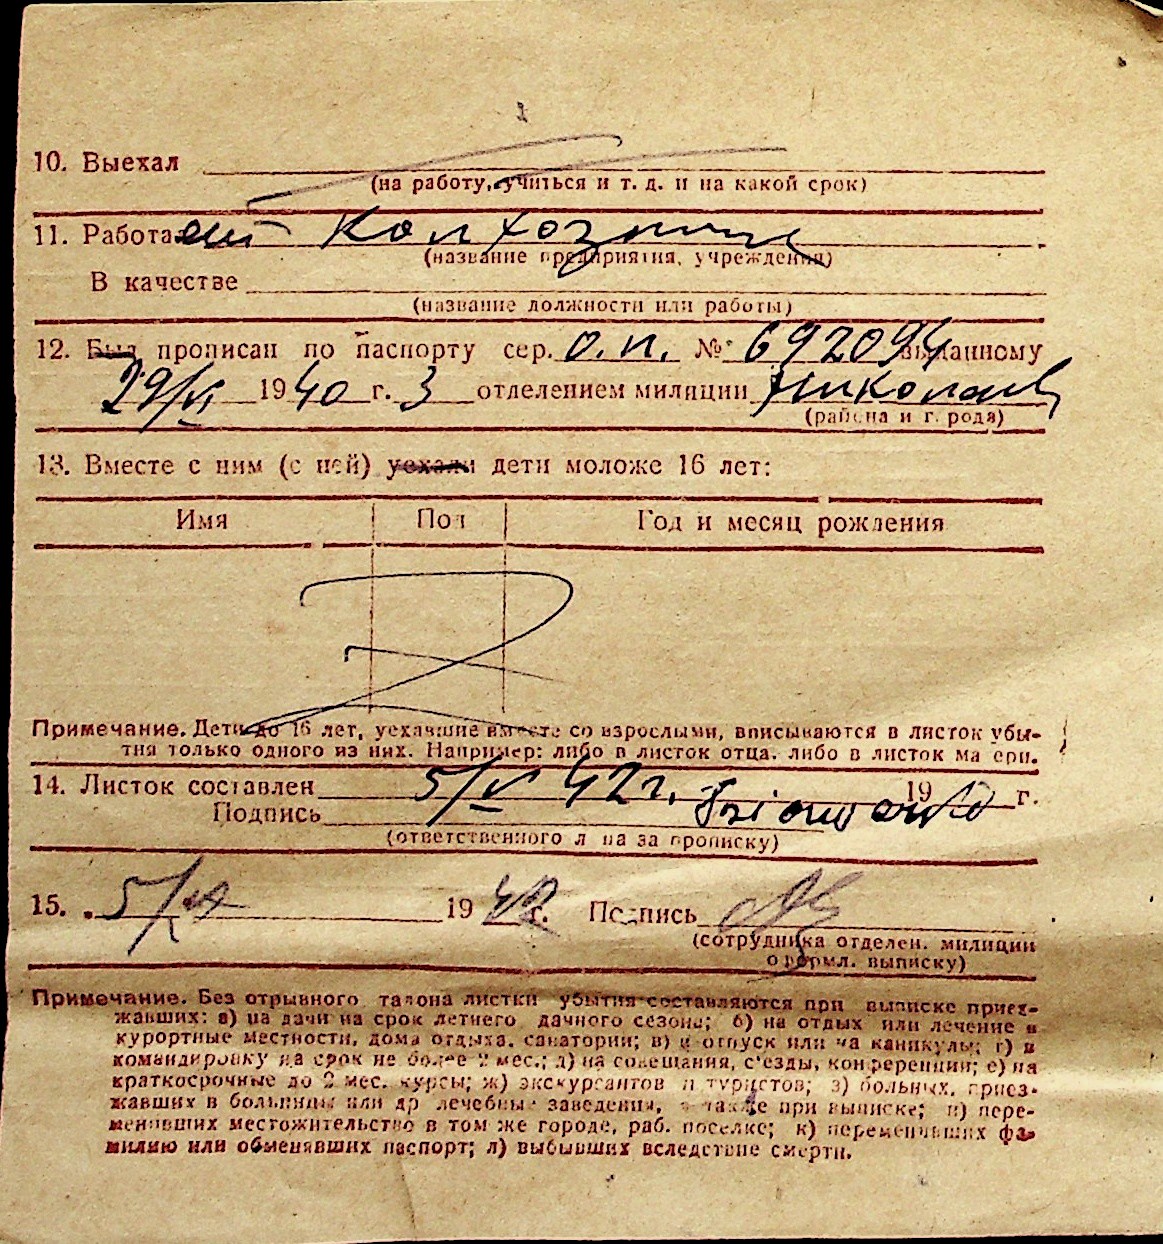 10. Выехал
(на работу, учиться и т. д. и на какой срок)
11. Работает Колхозник
(название предприятия, учреждения)
В качестве
(название должности или работы)
12. Был прописан по паспорту сер. О.П. № 692094 выданному
29/VI 1940 г. 3 отделением милиции Николаев
(района и г. рода)
13. Вместе с ним (с ней) уехали дети моложе 16 лет:
Имя Пол Год и месяц рождения
Z
Примечание. Дети до 16 лет, уехавшие вместе со взрослыми, вписываются в листок убы-
тия только одного из них. Например: либо в листок отца. либо в листок ма ери.
14. Листок составлен 5/V 42 г. 19 г.
Подпись
(ответственного л ца за прописку)
15. 5/ 1942 г. Подпись
(сотрудника отделен. милиции
оформл. выписку)
Примечание. Без отрывного талона листки убытия составляются при выписке приез-
жавших: а) на дачи на срок летнего дачного сезона; б) на отдых или лечение в
курортные местности, дома отдыха. санатории; в) в отпуск или на каникулы; г) в
командировку на срок не более 2 мес.; д) на совещания, с'езды, конференции; е) на
краткосрочные до 2 мес. курсы; ж) экскурсантов и туристов; з) больных, приез-
жавших в больницы или др лечебные заведения, а также при выписке; и) пере-
менивших местожительство в том же городе, раб. поселке; к) переменивших фа-
милию или обменявших паспорт; л) выбывших вследствие смерти.